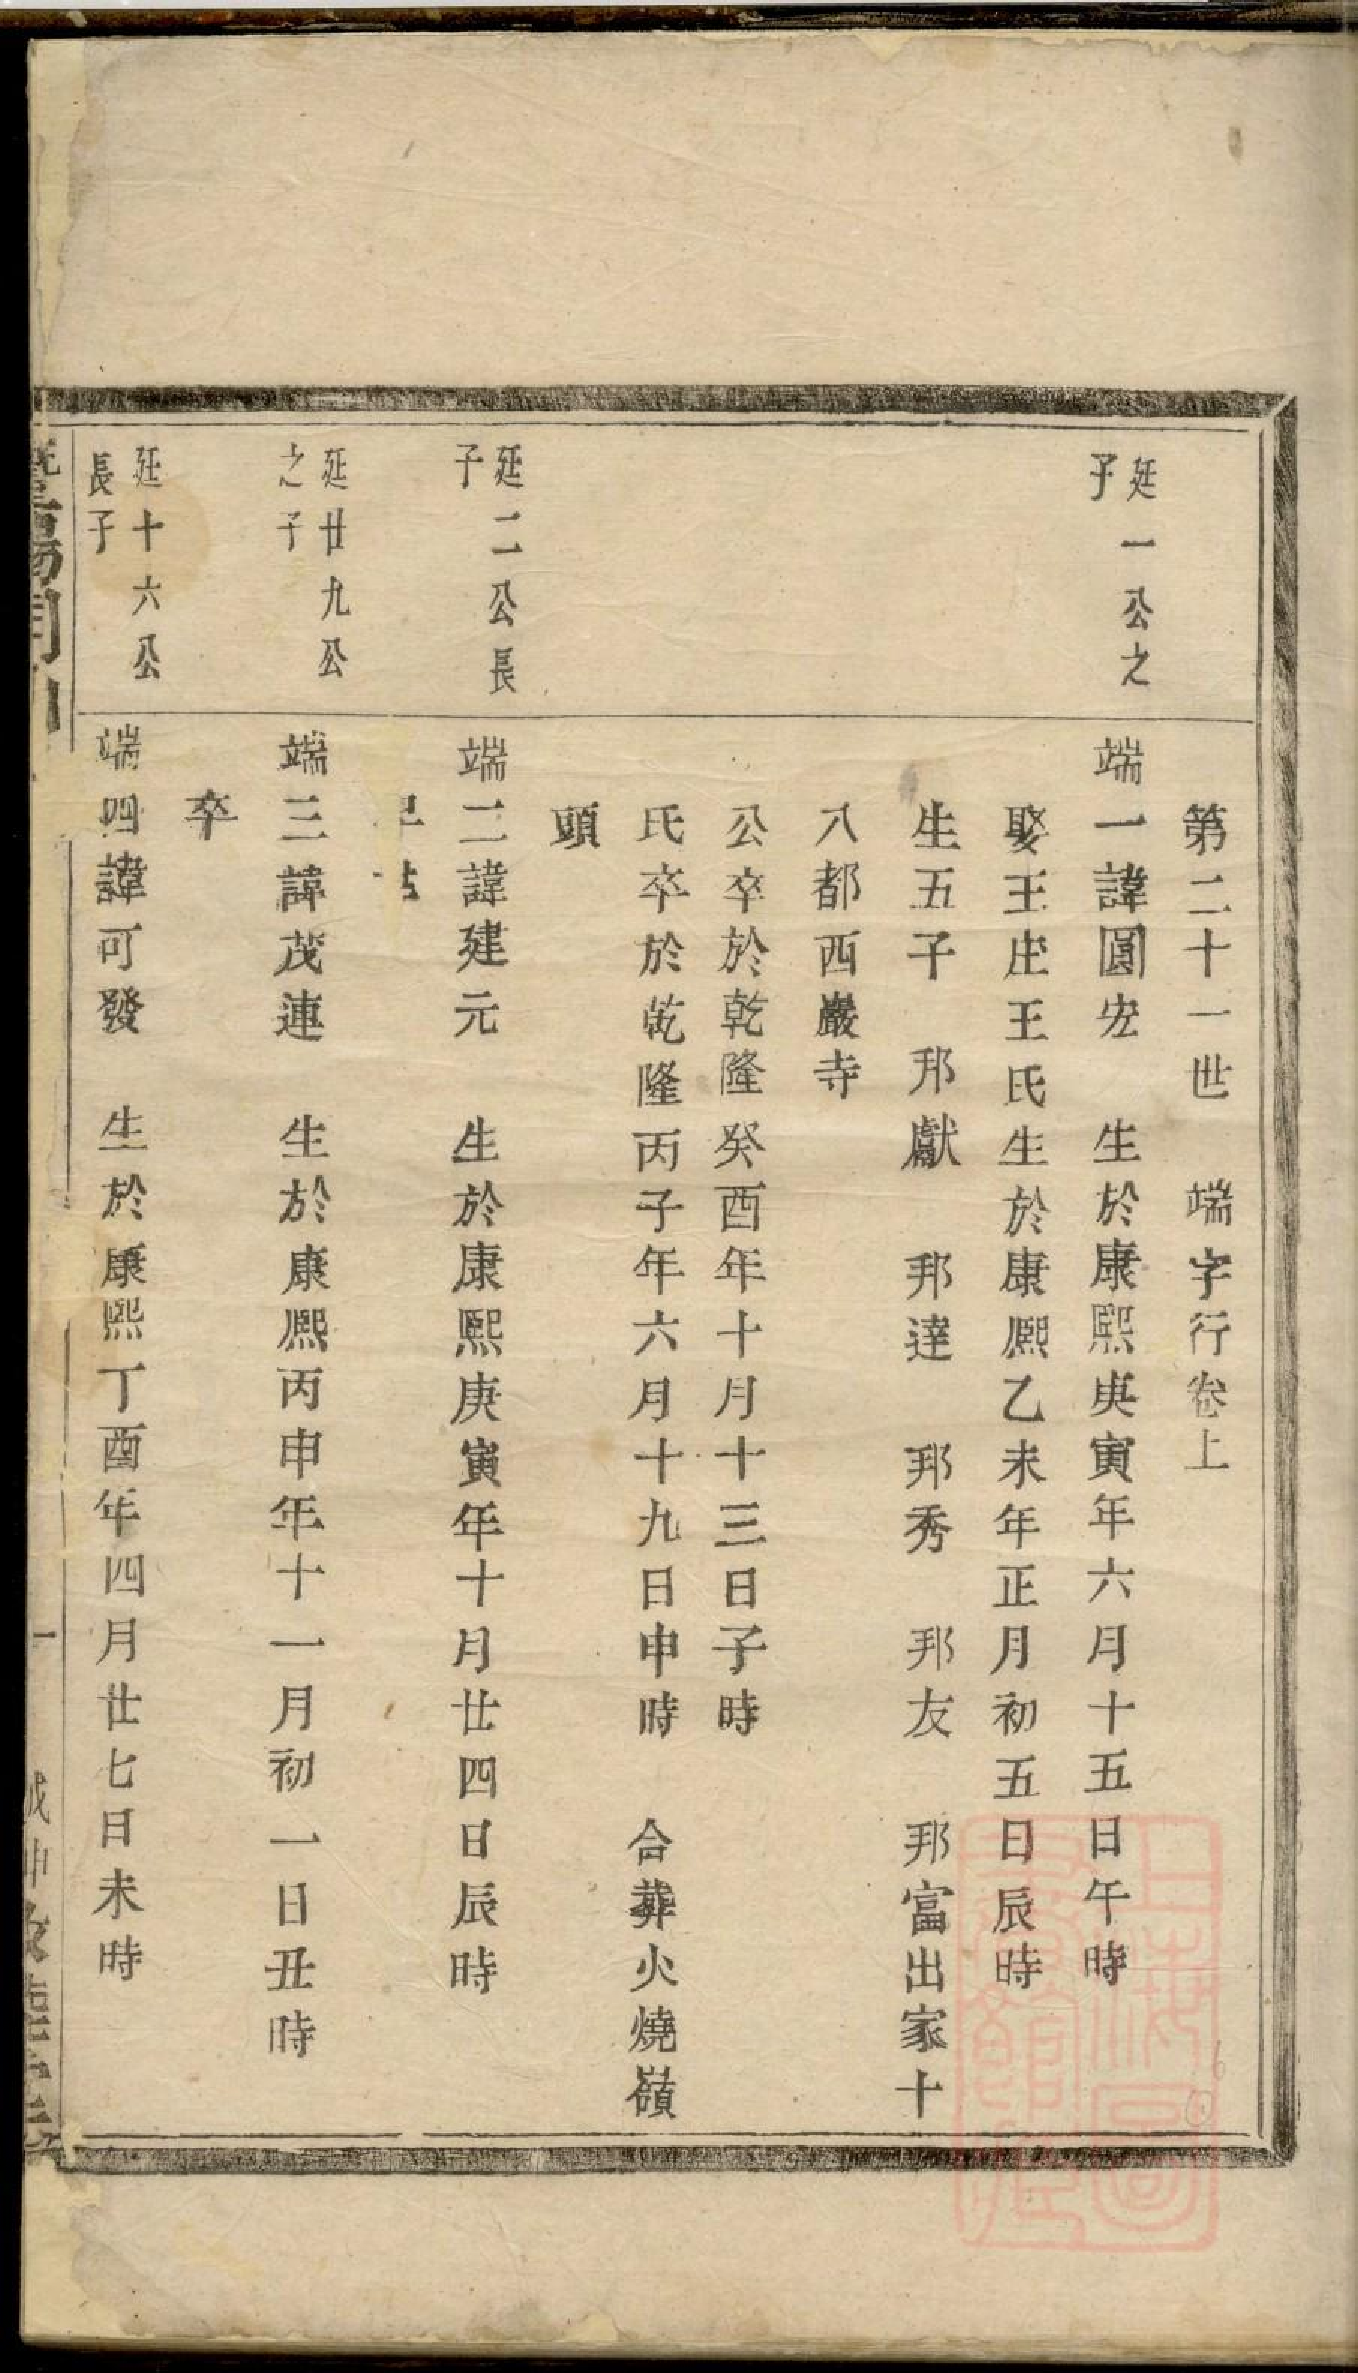 第二十一世　端字行卷上
廷一公之
子
端一諱圓宏　生於康熙庚寅年六月十五日午時
娶王庄王氏生於康熙乙未年正月初五日辰時
生五子　邦獻　邦達　邦秀　邦友　邦富出家十
八都西巖寺
公卒於乾隆癸酉年十月十三日子時
氏卒於乾隆丙子年六月十九日申時　合葬火燒嶺
頭
廷二公長
子
端二諱建元　生於康熙庚寅年十月廿四日辰時
廷廿九公
之子
端三諱茂連　生於康熙丙申年十一月初一日丑時
卒
廷十六公
長子
端四諱可發　生於康熙丁酉年四月廿七日未時
一
上海圖
書館藏